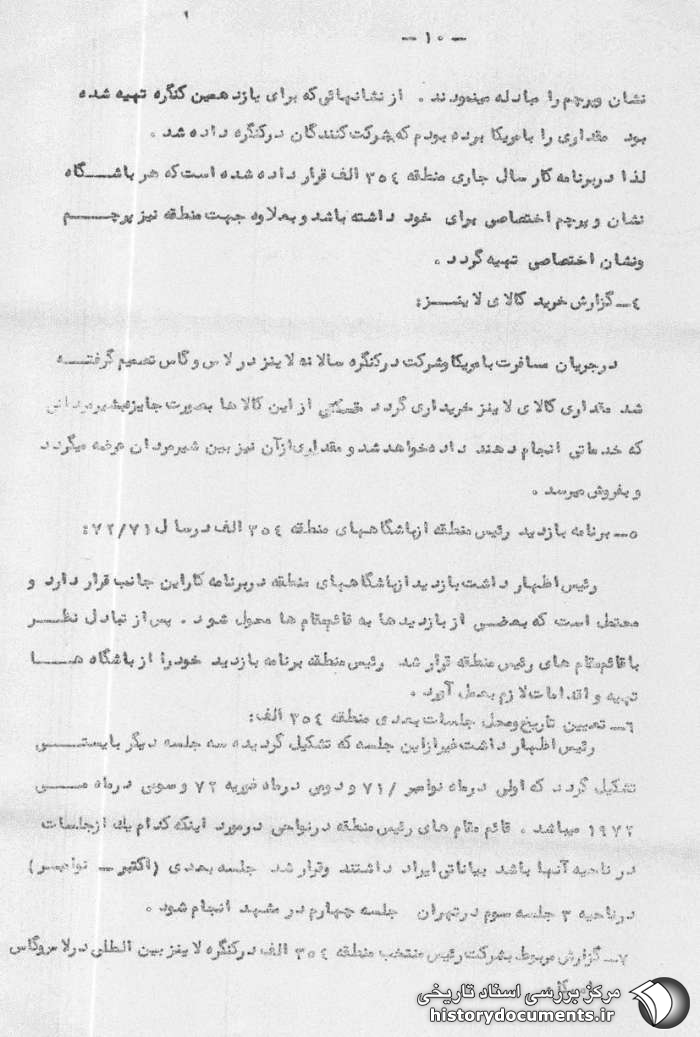 - ۱۰ -
نشان وپرچم را مبادله مینمودند . از نشانهائی که برای یازدهمین کنگره تهیه شده
بود مقداری را بامریکا برده بودم که بشرکت کنندگان درکنگره داده شد .
لذا دربرنامه کار سال جاری منطقه ۳۵۴ الف قرار داده شده است که هر باشگاه
نشان و پرچم اختصاصی برای خود داشته باشد و بعلاوه جهت منطقه نیز پرچم
ونشان اختصاصی تهیه گردد .
۴ـ گزارش خرید کالای لاینز :
درجریان مسافرت بامریکا وشرکت درکنگره سالانه لاینز در لاس وگاس تصمیم گرفته
شد مقداری کالای لاینز خریداری گردد قسمتی از این کالاها بصورت جایزه بشیرمردانی
که خدماتی انجام دهند داده خواهد شد و مقداری از آن نیز بین شیرمردان عرضه میگردد
و بفروش میرسد .
۵ـ برنامه بازدید رئیس منطقه ازباشگاههای منطقه ۳۵۴ الف درسال ۷۲/۷۱ :
رئیس اظهار داشت بازدید ازباشگاههای منطقه دربرنامه کار این جانب قرار دارد و
محتمل است که بعضی از بازدیدها به قائم مقام ها محول شود . پس از تبادل نظر
با قائم مقام های رئیس منطقه قرار شد رئیس منطقه برنامه بازدید خود را از باشگاه ها
تهیه و اقدامات لازم بعمل آورد .
۶ـ تعیین تاریخ ومحل جلسات بعدی منطقه ۳۵۴ الف :
رئیس اظهار داشت غیر ازاین جلسه که تشکیل گردیده سه جلسه دیگر بایستی
تشکیل گردد که اولی درماه نوامبر /۷۱ و دومی درماه فوریه ۷۲ و سومی درماه می
۱۹۷۲ میباشد . قائم مقام های رئیس منطقه درنواحی درمورد اینکه کدام یك ازجلسات
در ناحیه آنها باشد بیاناتی ایراد داشتند وقرار شد جلسه بعدی (اکتبر ـ نوامبر)
درناحیه ۳ جلسه سوم درتهران جلسه چهارم در مشهد انجام شود .
۷ـ گزارش مربوط بشرکت رئیس منتخب منطقه ۳۵۴ الف درکنگره لاینز بین المللی درلاس وگاس
مرکز بررسی اسناد تاریخی
historydocuments.ir